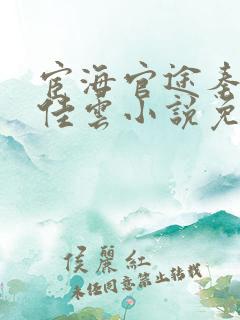 宦海官途秦
佳雲小說免
侯麗紅
未經同意禁止轉載